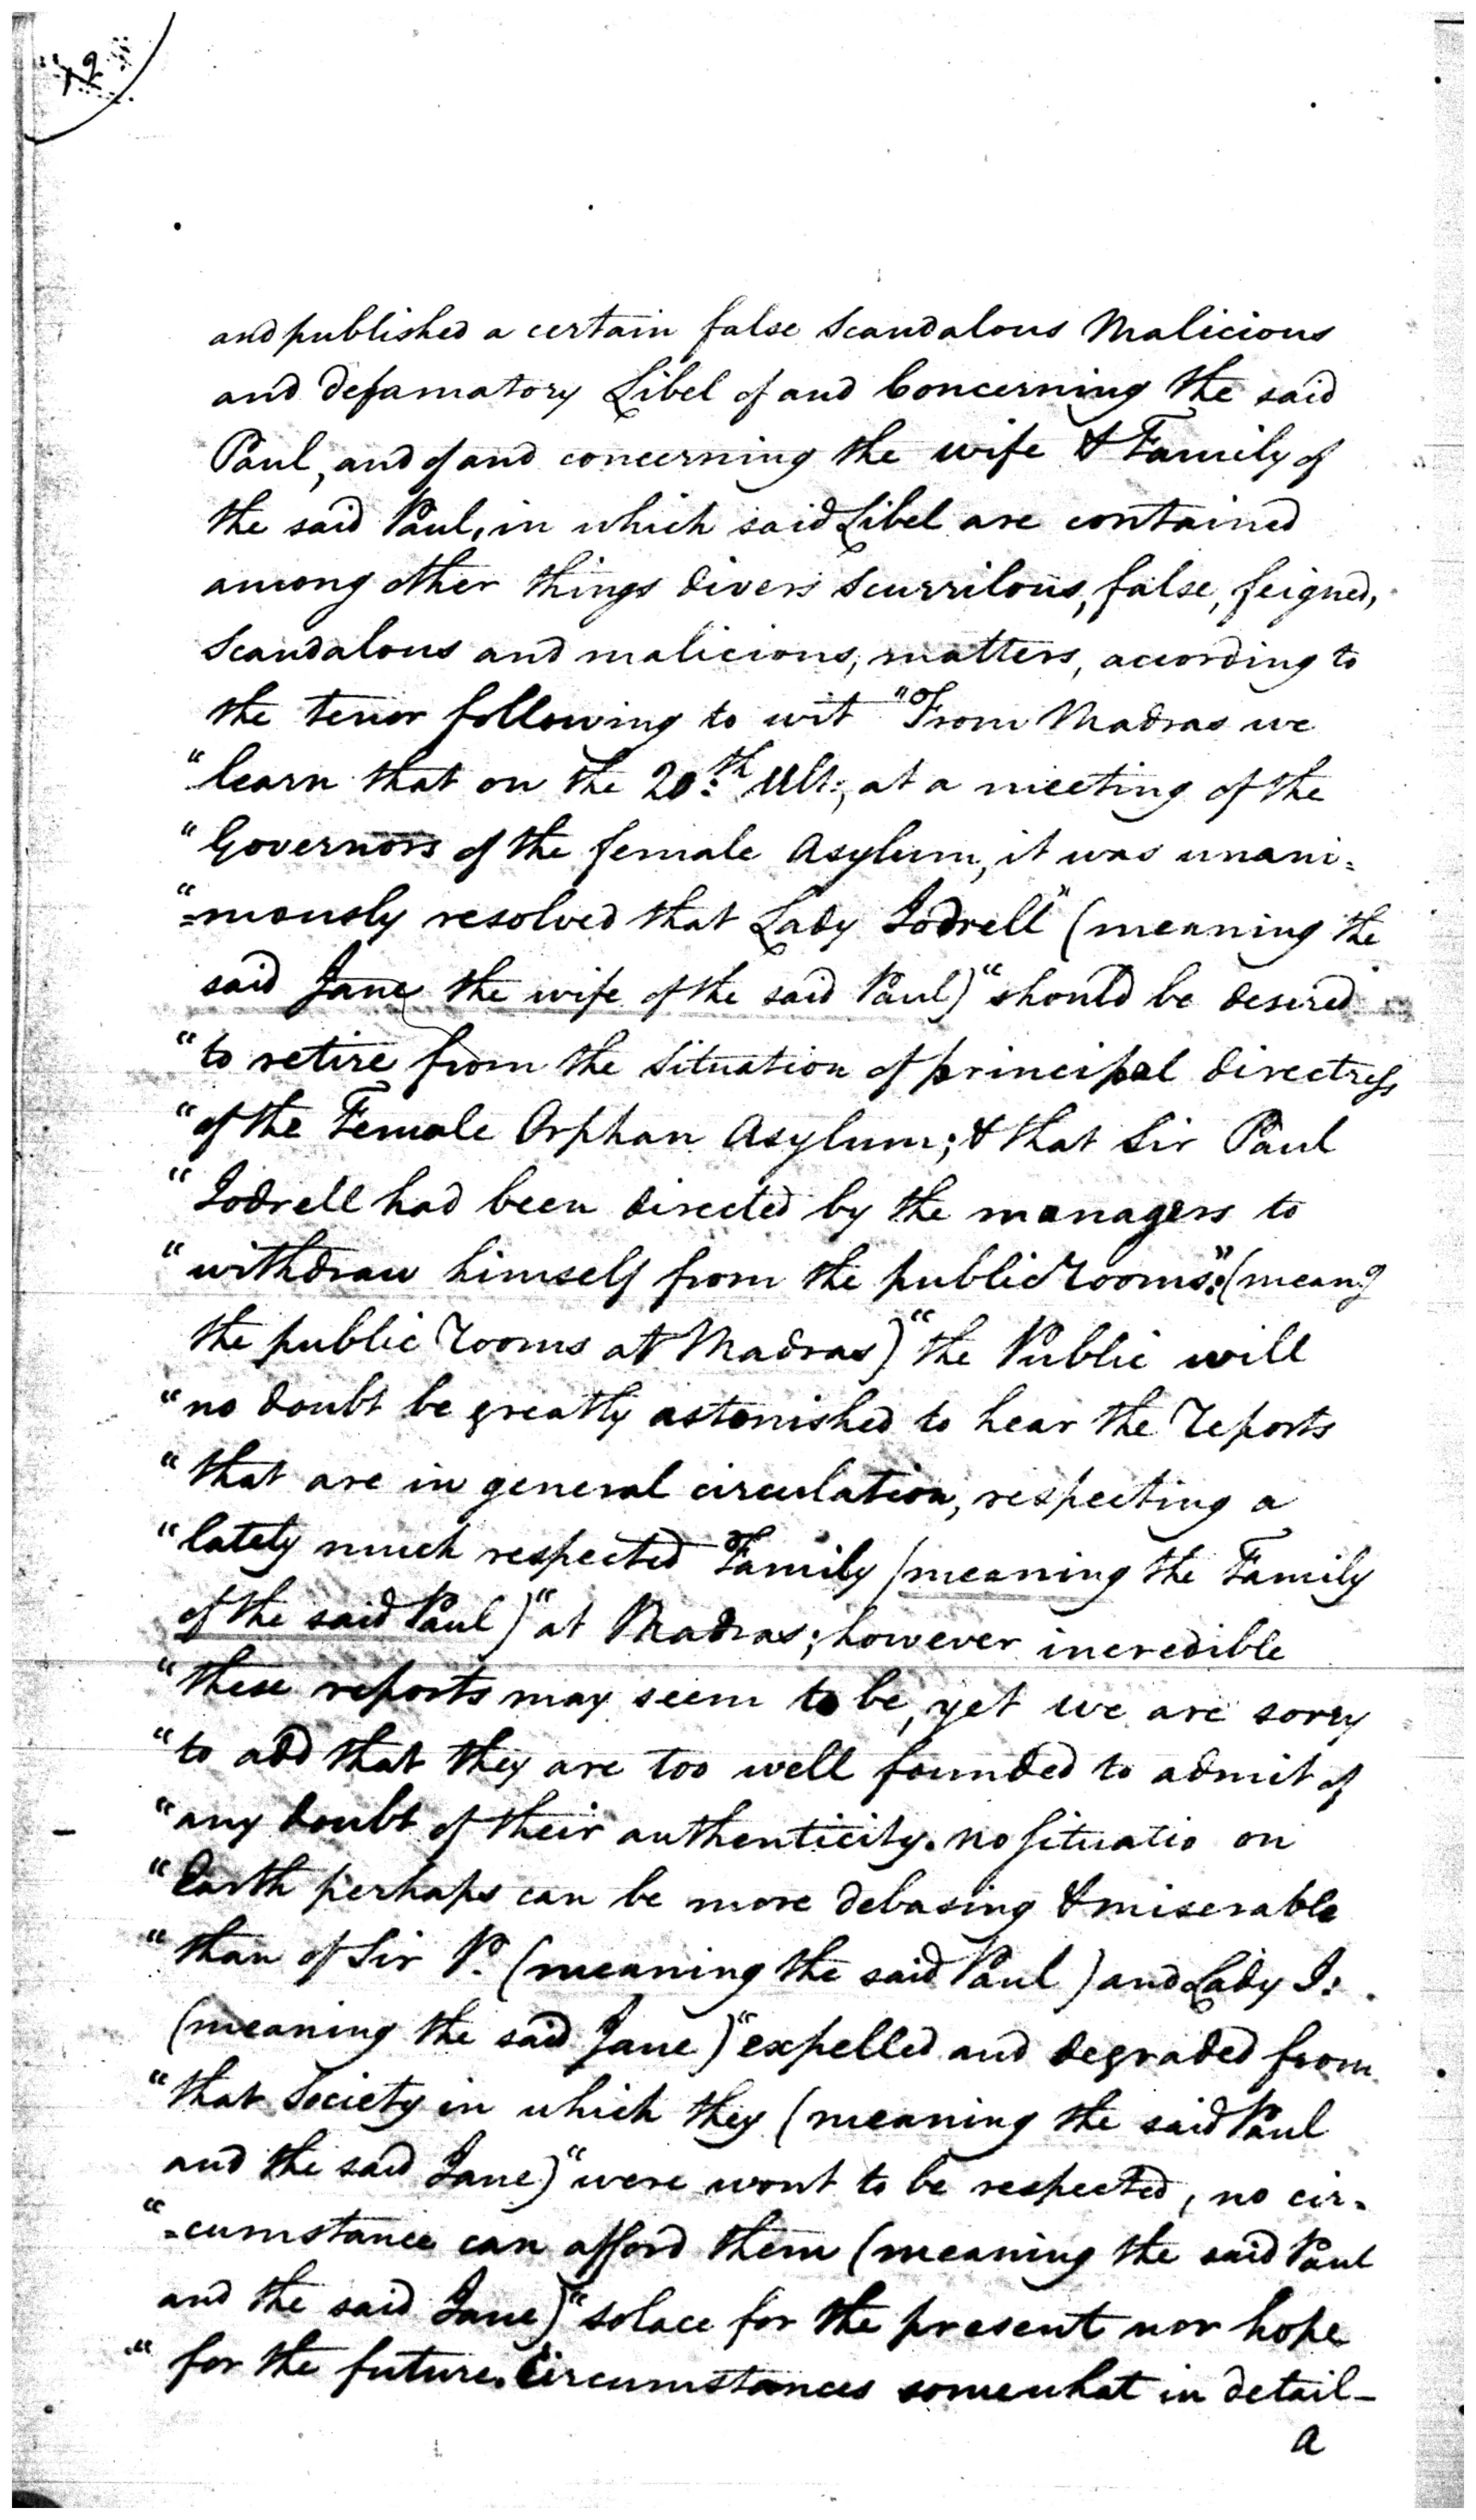 12
and published a certain false Scandalous Malicious
and defamatory Libel of and Concerning the said
Paul, and of and concerning the wife & Family of
the said Paul, in which said Libel are contained
among other things divers scurrilous, false, feigned,
Scandalous and malicious, matters, according to
the tenor following to wit "From Madras we
"learn that on the 20th. Ult:, at a meeting of the
"Governors of the female Asylum, it was unani=
"=mously resolved that Lady Jodrell" (meaning the
said Jane the wife of the said Paul) "should be desired
"to retire from the Situation of principal directress
"of the Female Orphan Asylum; & that Sir Paul
"Jodrell had been directed by the managers to
"withdraw himself from the public rooms." (meang
the public rooms at Madras) "the Public will
"no doubt be greatly astonished to hear the reports
"that are in general circulation, respecting a
"lately much respected Family (meaning the Family
of the said Paul) "at Madras; however incredible
"these reports may seem to be, yet we are sorry
"to add that they are too well founded to admit of
"any doubt of their authenticity. no Situatio on
"Earth perhaps can be more debasing & miserable
"than of Sir P. (meaning the said Paul) and Lady J:
(meaning the said Jane) "expelled and degraded from
"that Society in which they (meaning the said Paul
and the said Jane) "were wont to be respected, no cir=
"=cumstance can afford them (meaning the said Paul
and the said Jane) "solace for the present nor hope
"for the future. Circumstances somewhat in detail-
a